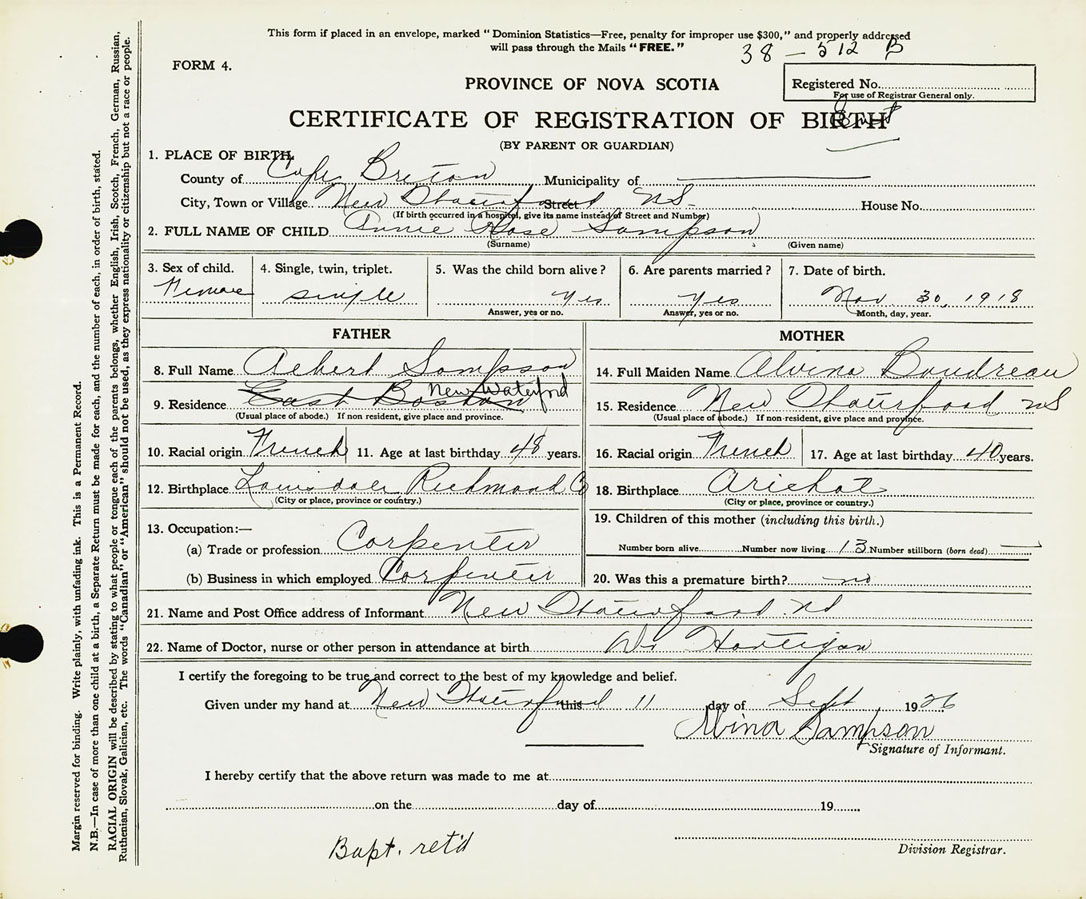 This form if placed in an envelope, marked "Dominion Statistics—Free, penalty for improper use $300," and properly addressed
will pass through the Mails "FREE."
38 – 512 B
FORM 4.
PROVINCE OF NOVA SCOTIA
Registered No.
For use of Registrar General only.
CERTIFICATE OF REGISTRATION OF BIRTH
(BY PARENT OR GUARDIAN)
1. PLACE OF BIRTH.
County of Cape Breton Municipality of
City, Town or Village New Waterford Street NS House No.
(If birth occurred in a hospital, give its name instead of Street and Number)
2. FULL NAME OF CHILD Annie Rose Sampson
(Surname) (Given name)
3. Sex of child. 4. Single, twin, triplet. 5. Was the child born alive? 6. Are parents married? 7. Date of birth.
Female single Yes Yes Nov 30, 1918
Answer, yes or no. Answer, yes or no. Month, day, year.
FATHER MOTHER
8. Full Name Albert Sampson 14. Full Maiden Name Alvina Boudreau
9. Residence East Boston New Waterford 15. Residence New Waterford NS
(Usual place of abode.) If non resident, give place and province. (Usual place of abode.) If non-resident, give place and province.
10. Racial origin French 11. Age at last birthday 48 years. 16. Racial origin French 17. Age at last birthday 40 years.
12. Birthplace Louisdale Richmond Co 18. Birthplace Arichat
(City or place, province or country.) (City or place, province or country.)
13. Occupation:— 19. Children of this mother (including this birth.)
(a) Trade or profession Carpenter Number born alive Number now living 13 Number stillborn (born dead)
(b) Business in which employed Carpenter 20. Was this a premature birth? no
21. Name and Post Office address of Informant New Waterford NS
22. Name of Doctor, nurse or other person in attendance at birth Dr Hartigan
I certify the foregoing to be true and correct to the best of my knowledge and belief.
Given under my hand at New Waterford this 11 day of Sept 1926
Alvina Sampson
Signature of Informant.
I hereby certify that the above return was made to me at
on the day of 19
Bapt. ret'd
Division Registrar.
Margin reserved for binding. Write plainly, with unfading ink. This is a Permanent Record.
N.B.—In case of more than one child at a birth, a Separate Return must be made for each, and the number of each, in order of birth, stated.
RACIAL ORIGIN will be described by stating to what people or tongue each of the parents belongs, whether English, Irish, Scotch, French, German, Russian,
Ruthenian, Slovak, Galician, etc. The words "Canadian" or "American" should not be used, as they express nationality or citizenship but not a race or people.